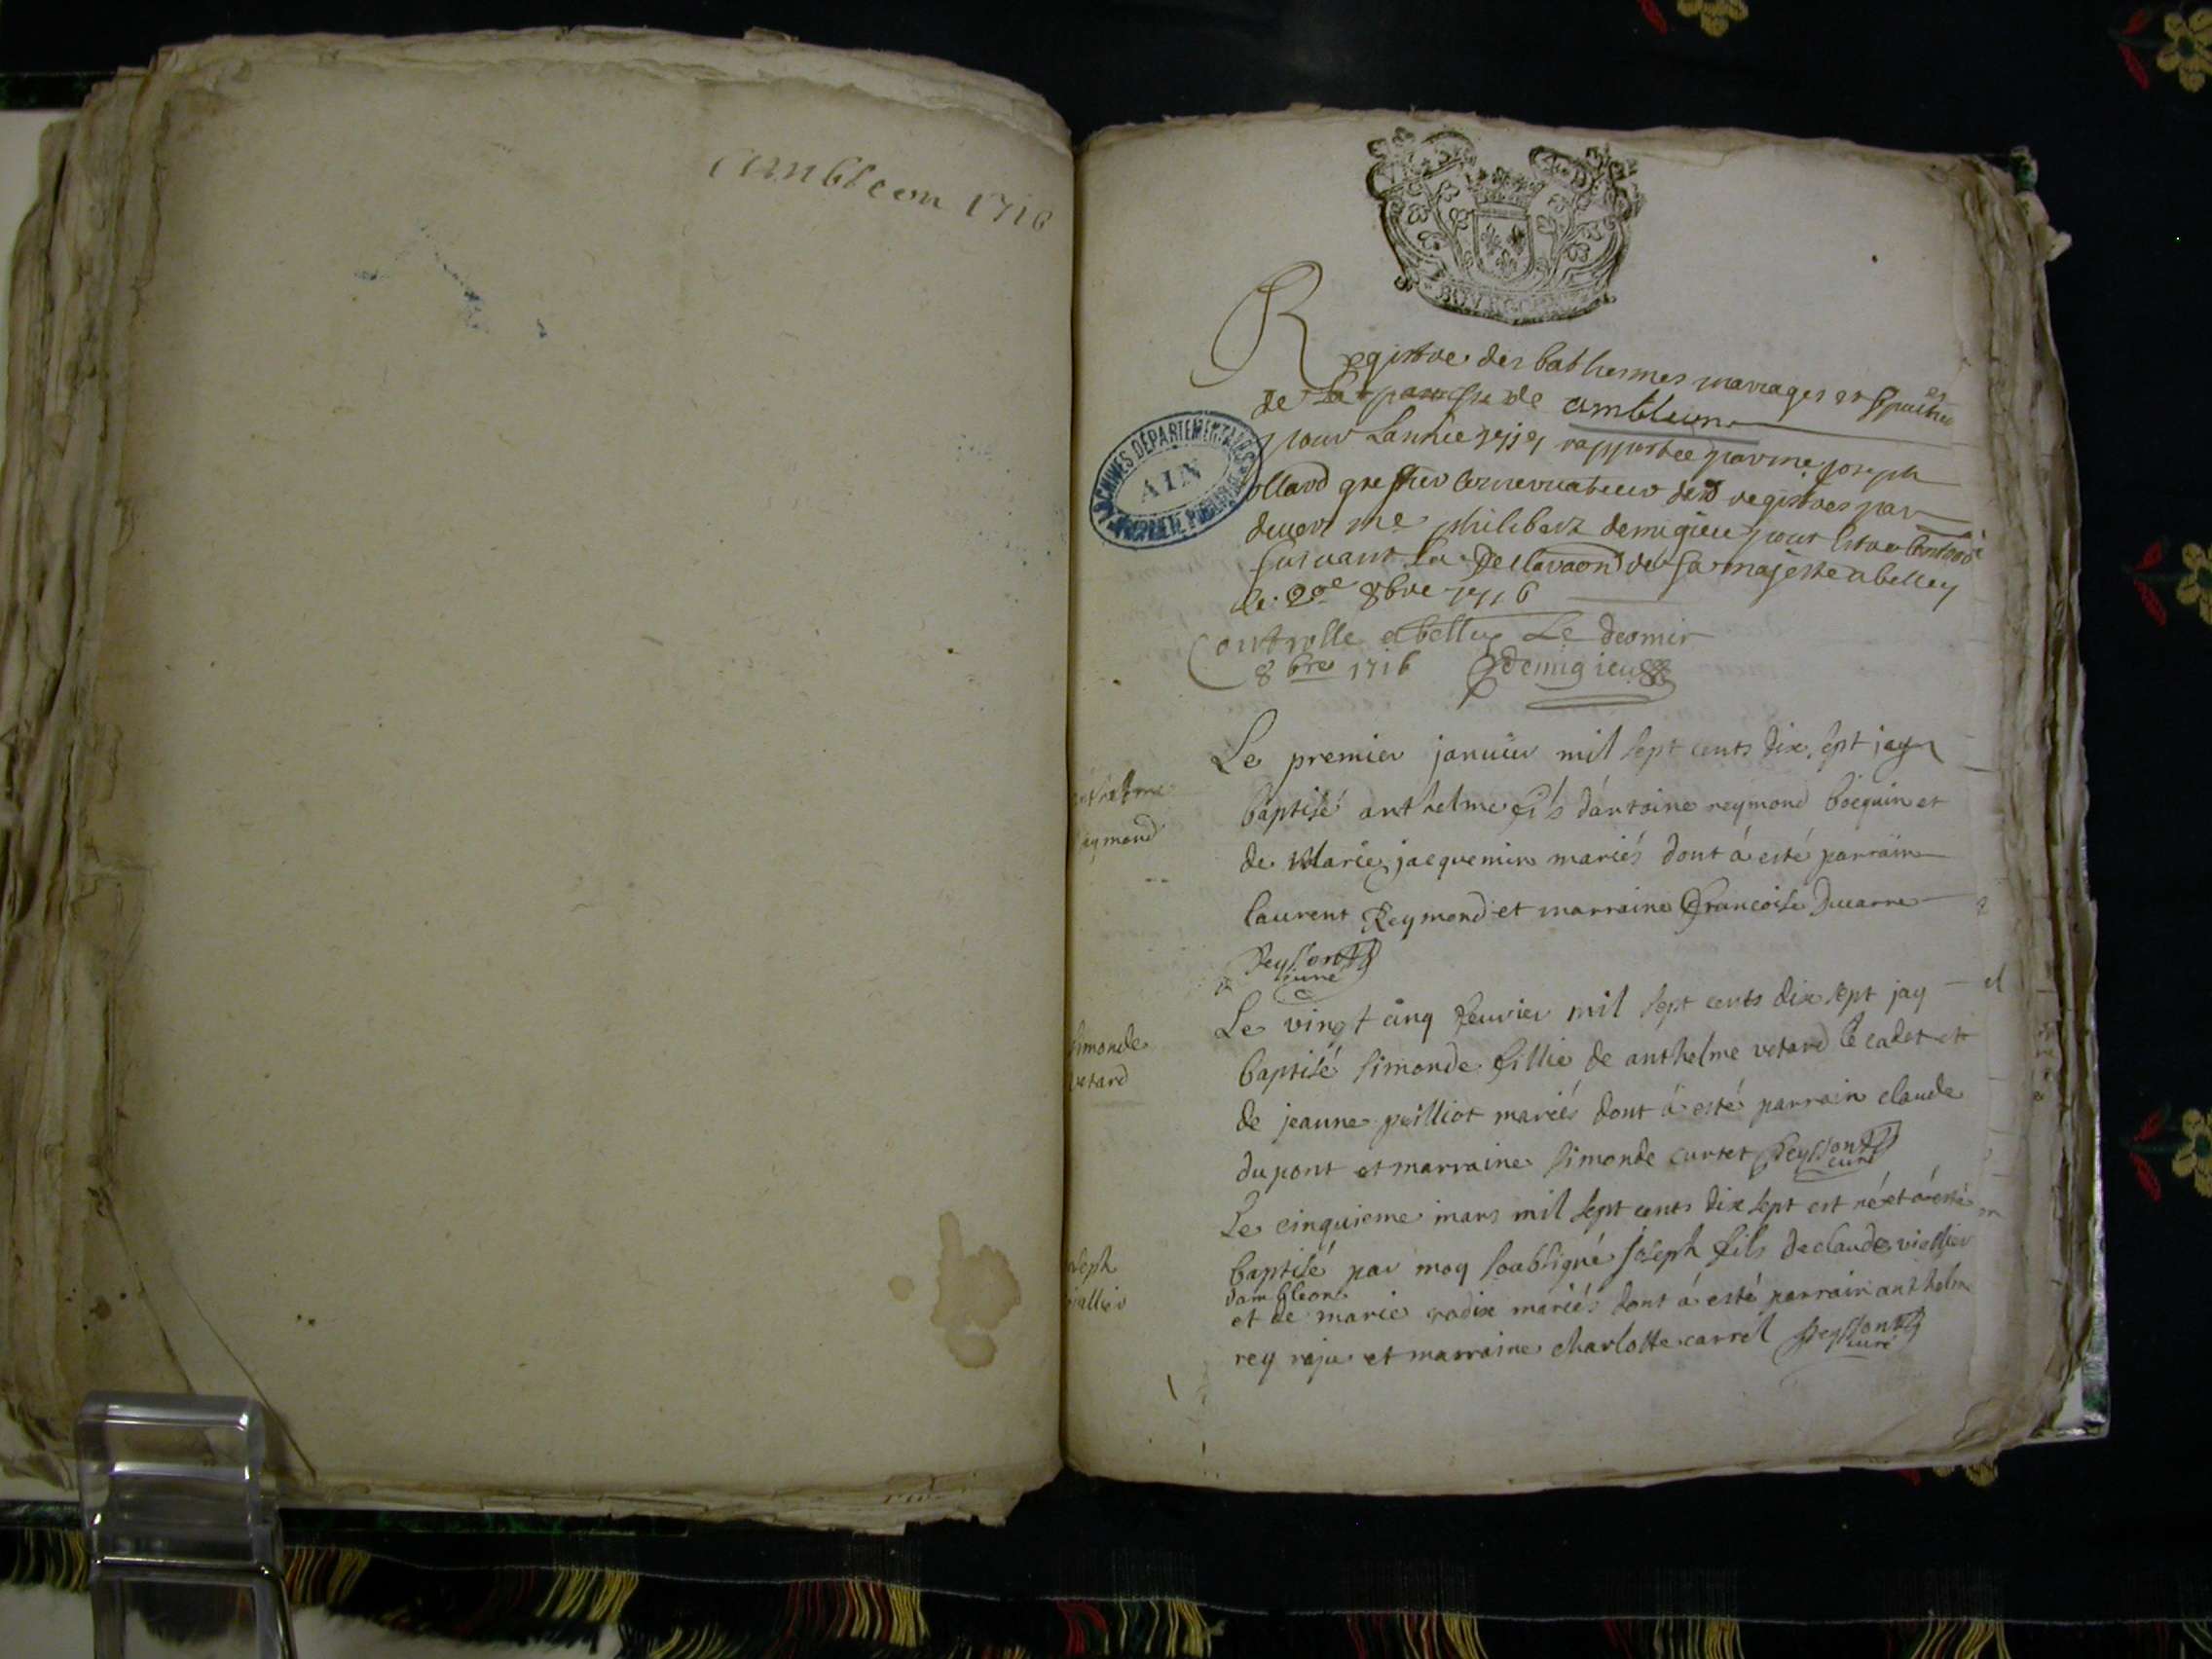 ambleon 1716
BOURGOGNE
Registre des bathesmes mariages et sepultures
de la paroisse de ambleon
pour Lannée 1717 rapportee par me joseph
ollard greffier conservateur desd registres par
devant me philibert demigieu pour estre controllé
suivant la Declaraon de sa majeste a belley
le 20e 8bre 1716
ARCHIVES DÉPARTEMENTALES
AIN
PROPRIÉTÉ PUBLIQUE
Controlle a belley Le
8bre 1716 demigieu
Le premier januier mil sept cents dix sept jay
anthelme
reymond
baptisé anthelme fils d'antoine reymond boequin et
de Marie jacquemin mariés dont á esté parrain
laurent Reymond et marraine francoise Ducarre
Peyssont
curé
Le vingt cinq feurier mil sept cents dix sept jay
simonde
vetard
baptisé simonde fillie de anthelme vetard le cadet et
de jeanne pilliot mariés dont á esté parrain claude
dupont et marraine simonde curtet Peyssont
curé
Le cinquieme mars mil sept cents dix sept est né et á esté
joseph
viallier
baptisé par moy soubsigné joseph fils de claude viallier
dambleon
et de marie radix mariés dont á esté parrain anthelme
rey raju et marraine charlotte carrel Peyssont
curé